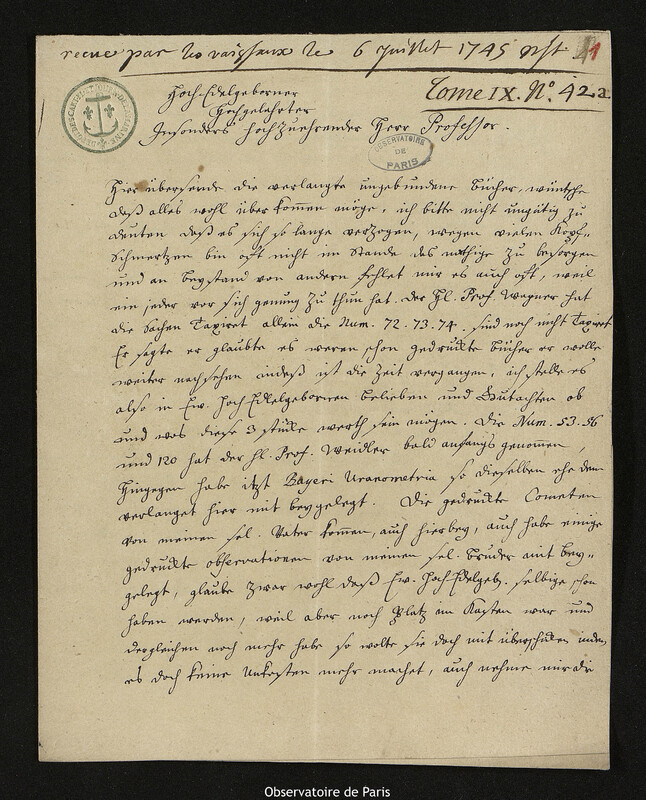 recue par les vaisseaux le 6 juillet 1745 nst. 1
Tome IX. N.o 42 a
DEPOT DES CARTES MARINE
OBSERVATOIRE
DE
PARIS
Hoch-Edelgeborner
Hochgelahrter
Insonders hochzuehrender Herr Professor.
Hier übersende die verlangte ungebundene Bücher, wünsche
daß alles wohl über kommen möge, ich bitte nicht ungütig zu
deuten daß es sich so lange verzogen, wegen vielen Kopf-
Schmertzen bin oft nicht im Stande das nöthige zu besorgen
und an beystand von andern fehlet mir es auch oft, weil
ein jeder vor sich genung zu thun hat. Der Hl. Prof. Wagner hat
die Sachen Taxiret allein die Num. 72. 73. 74. sind noch nicht Taxiret
Er sagte er glaubte es weren schon gedruckte Bücher er wolle
weiter nachsehen indeß ist die Zeit vergangen, ich stelle es
also in Ew. Hoch Edelgebornen belieben und Gutachten ob
und was diese 3 stücke werth sein mögen. Die Num. 53. 56
und 120 hat der Hl. Prof. Weidler bald anfangs genommen,
hingegen habe itzt Bayeri Uranometria so dieselben ehe dem
verlanget hier mit beygelegt. Die gedruckte Cometen
von meinen sel. Vater kommen, auch hierbey, auch habe einige
gedruckte observationen von meinen sel. Bruder mit bey-
gelegt, glaube zwar wohl daß Ew. Hoch Edelgeb. selbige schon
haben werden, weil aber noch Platz im Kasten war und
dergleichen noch mehr habe so wolte sie doch mit überschicken indem
es doch keine Unkosten mehr machet, auch nehme mir die
Observatoire de Paris